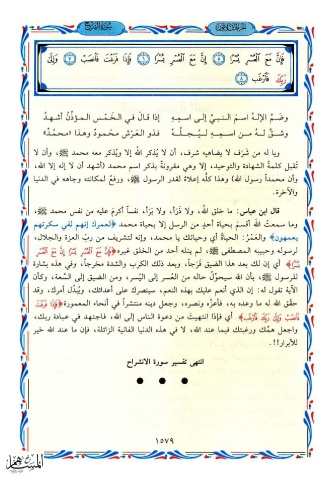 فَإِنَّ مَعَ ٱلْعُسْرِ يُسْرًا ۝ إِنَّ مَعَ ٱلْعُسْرِ يُسْرًا ۝ فَإِذَا فَرَغْتَ فَٱنصَبْ ۝ وَإِلَىٰ
رَبِّكَ فَٱرْغَب ۝
وضَمَّ الإلهُ اسمَ النبيِّ إلى اسمِهِ إذا قالَ في الخَمْسِ المؤذِّنُ أشْهدُ
وشقَّ لهُ من اسمِهِ ليُجلَّهُ فذو العَرْشِ محمودٌ وهذا «محمدُ»
ويا له من شَرَف لا يضاهيه شرف، أن لا يُذكر الله إلا ويُذكر معه محمد ﷺ، وأن لا
تُقبل كلمةُ الشهادة والتوحيد، إلا وهي مقرونة بذكر اسم محمد (أشهد أن لا إله إلا الله،
وأن محمداً رسول الله) وهذا كلُّه إعلاءٌ لقدر الرسول ﷺ، ورفعٌ لمكانته وجاهه في الدنيا
والآخرة.
قال ابن عباس: ما خلق الله، ولا ذَرَأ، ولا بَرَأ، نفساً أكرمَ عليه من نفس محمد ﷺ،
وما سمعتُ الله أقسمَ بحياةِ أحدٍ من الرسل إلا بحياة محمد ﴿لعمرك إنهم لفي سكرتهم
يعمهون﴾ والعَمْرُ: الحياةُ أي وحياتك يا محمد، وإنه لتشريف من ربّ العزة والجلال،
لرسوله وحبيبه المصطفى ﷺ، لم ينله أحد من الخلق غيره ﴿فَإِنَّ مَعَ ٱلْعُسْرِ يُسْرًا إِنَّ مَعَ ٱلْعُسْرِ
يُسْرًا﴾ أي إن لك بعد هذا الضيق فَرَجاً، وبعد ذلك الكرب والشدة مخرجاً، وفي هذه بشارة
للرسول ﷺ، بأن الله سيحوّل حاله من العُسر إلى اليُسر، ومن الضيق إلى السَّعة، وكأن
الآية تقول له: إن الذي أنعم عليك بهذه النعم، سينصرك على أعدائك، ويُبدّل أمرك، وقد
حقَّق الله له ما وعده به، فأعزَّه ونصره، وجعل دينه منتشراً في أنحاء المعمورة ﴿فَإِذَا فَرَغْتَ
فَٱنصَبْ وَإِلَىٰ رَبِّكَ فَٱرْغَب﴾ أي فإذا انتهيتَ من دعوة الناس إلى الله، فاجتهد في عبادة ربك،
واجعل همَّك ورغبتك فيما عند الله، لا في هذه الدنيا الفانية الزائلة، فإن ما عند الله خير
للأبرار!!.
انتهى تفسير سورة الانشراح
١٥٧٩